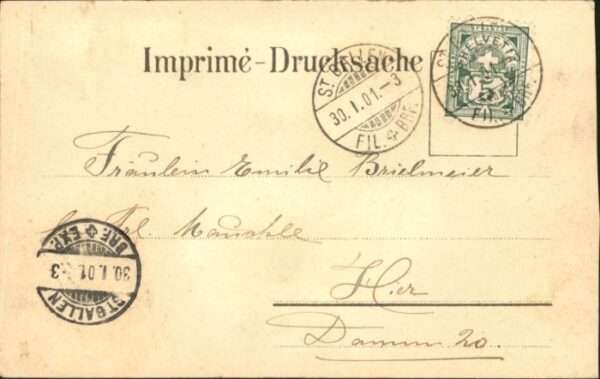 Imprimé - Drucksache
ST. GALLEN
30.I.01.-3
FIL. BRF.
HELVETIA
5
FIL. BRF.
Fräulein Emilie Brielmeier
Frl.
Hier
Damm 20.
BRF. EXP.
30.I.01.-3
ST. GALLEN